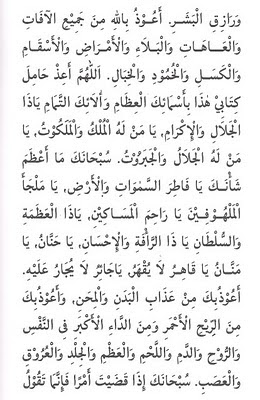 وَرَازِقِ الْبَشَرِ. أَعُوْذُ بِاللهِ مِنْ جَمِيْعِ الْآفَاتِ
وَالْعَاهَاتِ وَالْبَلَاءِ وَالْأَمْرَاضِ وَالْأَسْقَامِ
وَالْكَسَلِ وَالْخُمُوْدِ وَالْخِبَالِ. اَللّٰهُمَّ أَعِذْ حَامِلَ
كِتَابِيْ هٰذَا بِأَسْمَائِكَ الْعِظَامِ وَآلَائِكَ التَّمَامِ يَاذَا
الْجَلَالِ وَالْإِكْرَامِ، يَا مَنْ لَهُ الْمُلْكُ وَالْمَلَكُوْتُ، يَا
مَنْ لَهُ الْجَلَالُ وَالْجَبَرُوْتُ. سُبْحَانَكَ مَا أَعْظَمَ
شَأْنَكَ يَا فَاطِرَ السَّمٰوَاتِ وَالْأَرْضِ، يَا مَلْجَأَ
الْمَلْهُوْفِيْنَ يَا رَاحِمَ الْمَسَاكِيْنِ، يَاذَا الْعَظَمَةِ
وَالسُّلْطَانِ يَا ذَا الرَّأْفَةِ وَالْإِحْسَانِ، يَا حَنَّانُ، يَا
مَنَّانُ يَا قَاهِرُ لَا يُقْهَرُ يَاجَائِرُ لَا يُجَارُ عَلَيْهِ.
أَعُوْذُبِكَ مِنْ عَذَابِ الْبَدَنِ وَالْمِحَنِ، وَأَعُوْذُبِكَ
مِنَ الرِّيْحِ الْأَحْمَرِ وَمِنَ الدَّاءِ الْأَكْبَرِ فِى النَّفْسِ
وَالرُّوْحِ وَالدَّمِ وَاللَّحْمِ وَالْعَظْمِ وَالْجِلْدِ وَالْعُرُوْقِ
وَالْعَصَبِ. سُبْحَانَكَ إِذَا قَضَيْتَ أَمْرًا فَإِنَّمَا تَقُوْلُ